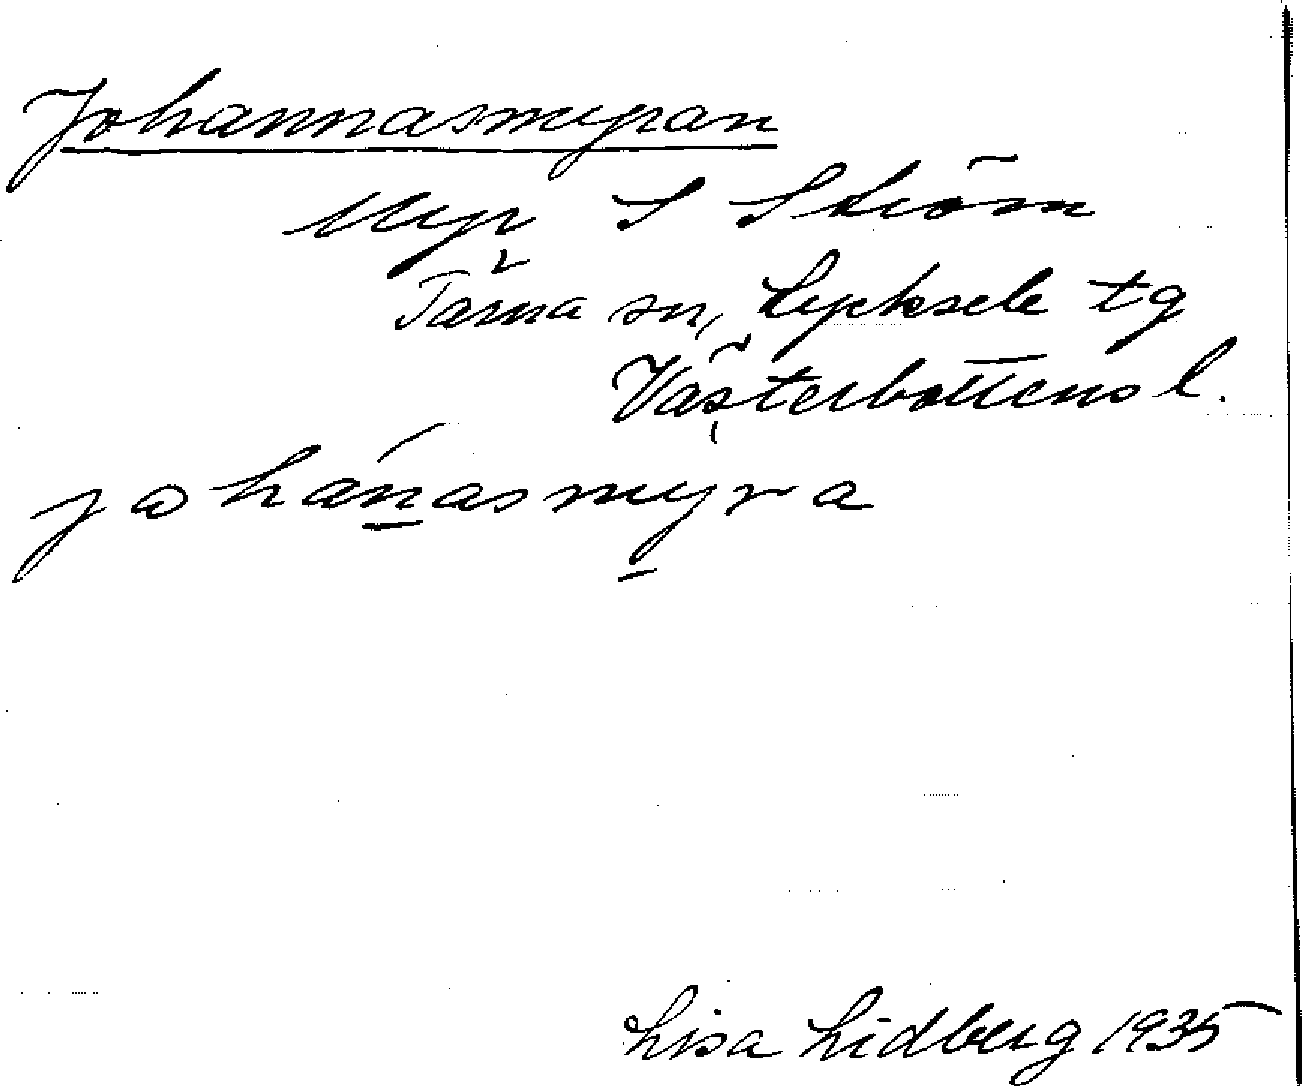 Johannasmyran
Myr S Ström
Tärna sn, Lycksele tg
Västerbottens l.
johánasmyra
Lisa Lidberg 1935